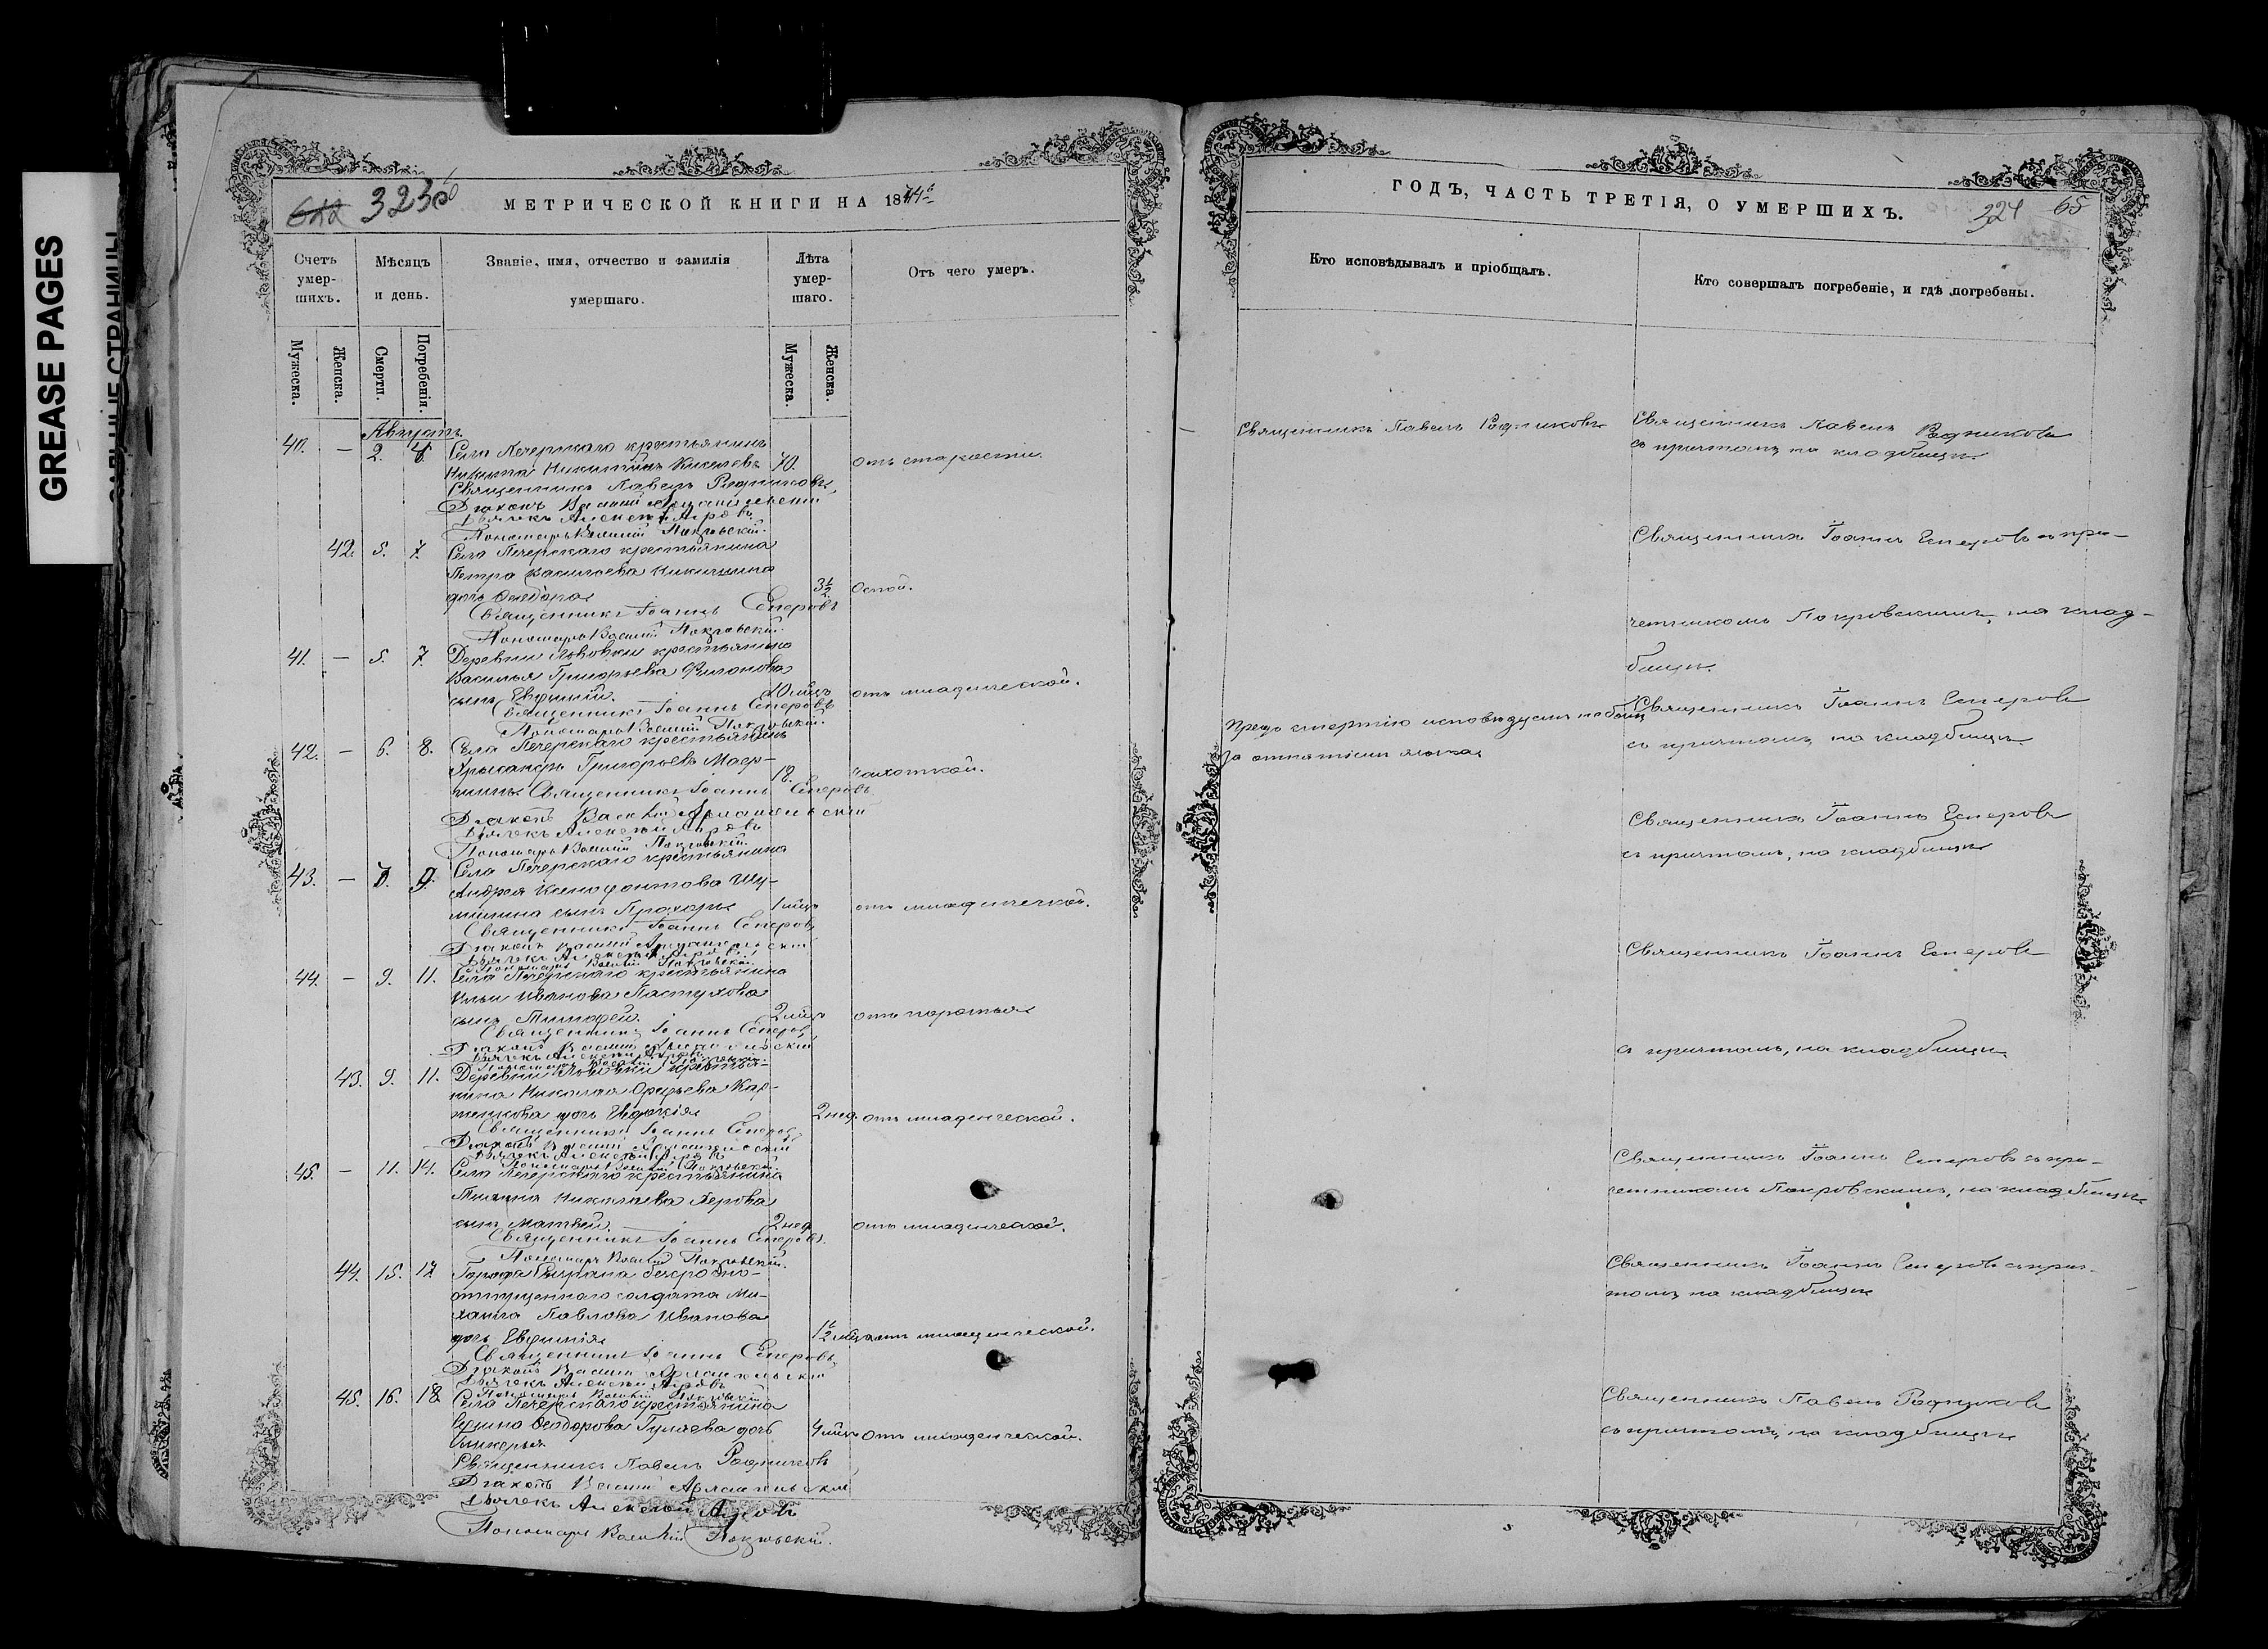 GREASE PAGES
323об
МЕТРИЧЕСКОЙ КНИГИ НА 1874й
Счетъ умер-шихъ.
Мѣсяцъ и день.
Званіе, имя, отчество и фамилія умершаго.
Лѣта умер-шаго.
Отъ чего умеръ.
Мужеска.
Женска.
Смерти.
Погребенія.
Мужеска.
Женска.
Августъ
40. — 2. 4. Села Печерскаго крестьянинъ
Никита Никитинъ Киселевъ 70. отъ старости.
Священникъ Павелъ Родниковъ
Діаконъ Василій Архангельскій
Дьячекъ Алексѣй
Пономарь Василій Покровскій.
42. 5. 7. Села Печерскаго крестьянина
Петра Васильева Никишина
дочь Ѳеодора 3½ Оспой.
Священникъ Іоаннъ Есперовъ
Пономарь Василій Покровскій.
41. — 5. 7. Деревни Львовки крестьянина
Василья Григорьева Филонова
сынъ Евфимій. 10 мѣцъ отъ младенческой.
Священникъ Іоаннъ Есперовъ
Пономарь Василій Покровскій.
42. — 6. 8. Села Печерскаго крестьянинъ
Хрисанфъ Григорьевъ
18. чахоткой.
Священникъ Іоаннъ Есперовъ
Діаконъ Василій Архангельскій
Дьячекъ Алексѣй
Пономарь Василій Покровскій.
43. — 7. 9. Села Печерскаго крестьянина
Андрея Ксенофонтова Шу-
милина сынъ Прохоръ 1 мѣцъ отъ младенческой.
Священникъ Іоаннъ Есперовъ
Діаконъ Василій Архангельскій
Дьячекъ Алексѣй
Пономарь Василій Покровскій.
44. — 9. 11. Села Печерскаго крестьянина
Ильи Иванова Пастухова
сынъ Тимофей. 2 мѣц отъ
Священникъ Іоаннъ Есперовъ
Діаконъ Василій Архангельскій
Дьячекъ Алексѣй
Пономарь Василій Покровскій.
43. 9. 11. Деревни Львовки крестья-
нина Николая
дочь Евдокія 2 нед. отъ младенческой.
Священникъ Іоаннъ Есперовъ
Діаконъ Василій Архангельскій
Дьячекъ Алексѣй
Пономарь Василій Покровскій.
45. — 11. 14. Села Печерскаго крестьянина
Николаева
сынъ Матвѣй. 2 нед. отъ младенческой.
Священникъ Іоаннъ Есперовъ.
Пономарь Василій Покровскій.
44. 15. 17. Города Сызрана безсрочно-
отпущеннаго солдата Ми-
хаила Павлова Иванова
дочь Евфимія 1½ мѣц отъ младенческой.
Священникъ Іоаннъ Есперовъ
Діаконъ Василій Архангельскій
Дьячекъ Алексѣй
Пономарь Василій Покровскій
45. 16. 18. Села Печерскаго крестьянина
Ѳеодорова Гуляева дочь 4 мѣц отъ младенческой.
Гликерья
Священникъ Павелъ Родниковъ
Діаконъ Василій Архангельскій
Дьячекъ Алексѣй
Пономарь Василій Покровскій.
ГОДЪ, ЧАСТЬ ТРЕТІЯ, О УМЕРШИХЪ.
324 65
Кто исповѣдывалъ и пріобщалъ.
Кто совершалъ погребеніе, и гдѣ погребены.
Священникъ Павелъ Родниковъ
Священникъ Павелъ Родниковъ
съ причтомъ на кладбищѣ
Священникъ Іоаннъ Есперовъ съ при-
четникомъ Покровскимъ, на клад-
бищѣ.
Предъ смертію исповѣдуемъ не былъ
за отнятіемъ языка
Священникъ Іоаннъ Есперовъ
съ причтомъ, на кладбищѣ.
Священникъ Іоаннъ Есперовъ
съ причтомъ, на кладбищѣ
Священникъ Іоаннъ Есперовъ
съ причтомъ, на кладбищѣ
Священникъ Іоаннъ Есперовъ съ при-
четникомъ Покровскимъ, на кладбищѣ
Священникъ Іоаннъ Есперовъ съ прич-
томъ на кладбищѣ
Священникъ Павелъ Родниковъ
съ причтомъ, на кладбищѣ